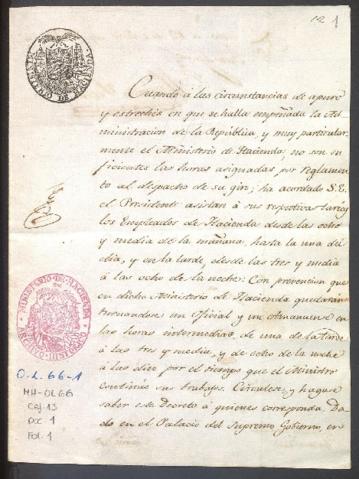 12 1
Cuando á las circunstancias de apuro
y estrechés en que se halla empeñada la Ad-
ministracion de la República, y muy particular-
mente el Ministerio de Hacienda, no son su-
ficientes las horas asignadas, por reglamen-
to al despacho de su giro; ha acordado S.E.
el Presidente asistan á sus respectivas tareas
los Empleados de Hacienda desde las ocho
y media de la mañana, hasta la una del
dia, y en la tarde, desde las tres y media
á las ocho de la noche: Con prevencion que
en dicho Ministerio de Hacienda quedarán
turnandose un Oficial y un Amanuense en
las horas intermedias, de una de la tarde
á las tres y media, y de ocho de la noche
á las diez por el tiempo que el Ministro
continúe sus trabajos. Circúlese, y hagase
saber este Decreto á quienes corresponda. Da-
do en el Palacio del Supremo Gobierno, en
MINISTERIO DE HACIENDA
ARCHIVO HISTORICO
O.L. 66-1
MH-OL66
Caj. 13
Doc. 1
Fol. 1